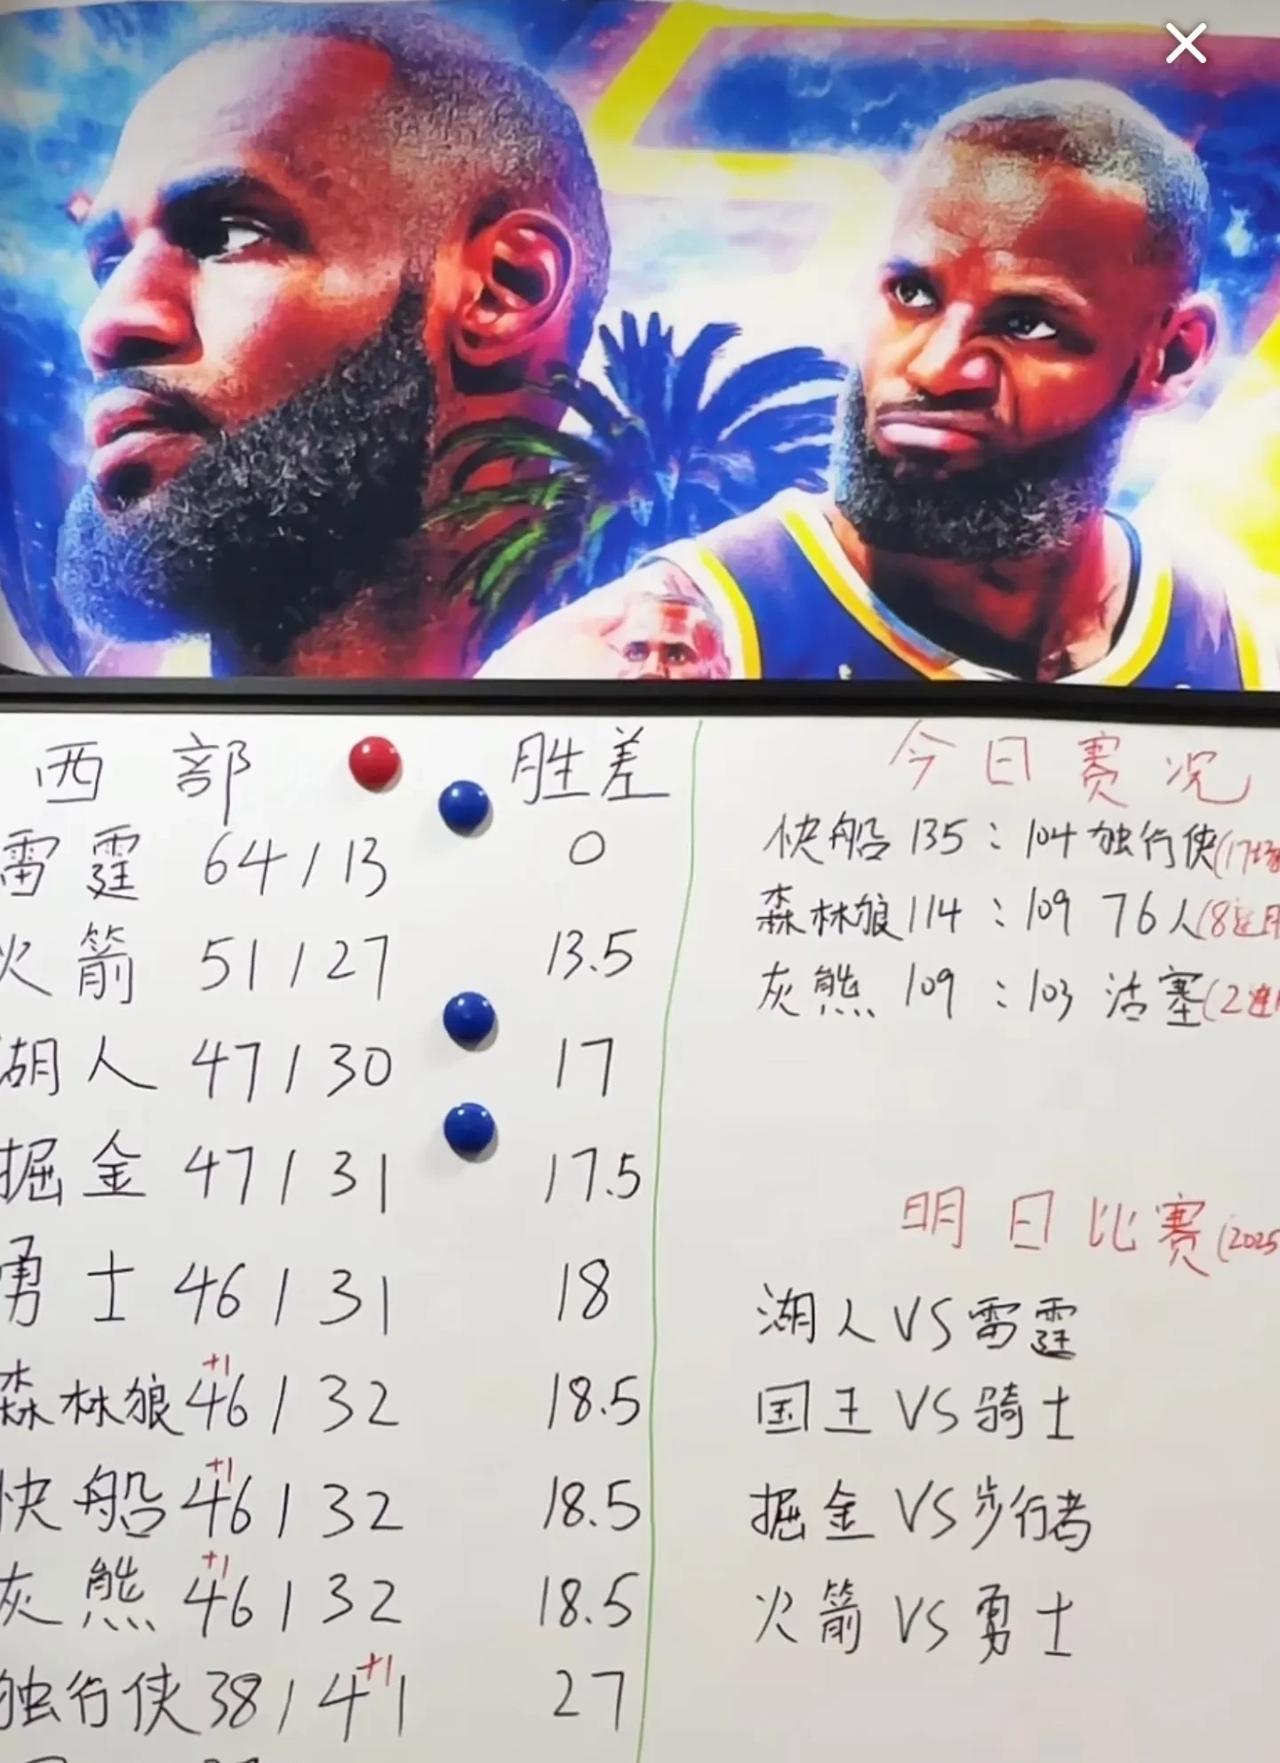 西部 胜差
雷霆 64/13 0
火箭 51/27 13.5
湖人 47/30 17
掘金 47/31 17.5
勇士 46/31 18
+1
森林狼 46/32 18.5
+1
快船 46/32 18.5
+1
灰熊 46/32 18.5
+1
独行侠 38/41 27
今日赛况
快船 135 : 104 独行侠(17场
森林狼 114 : 109 76人(8连
灰熊 109 : 103 活塞(2连
明日比赛(2025
湖人 VS 雷霆
国王 VS 骑士
掘金 VS 步行者
火箭 VS 勇士